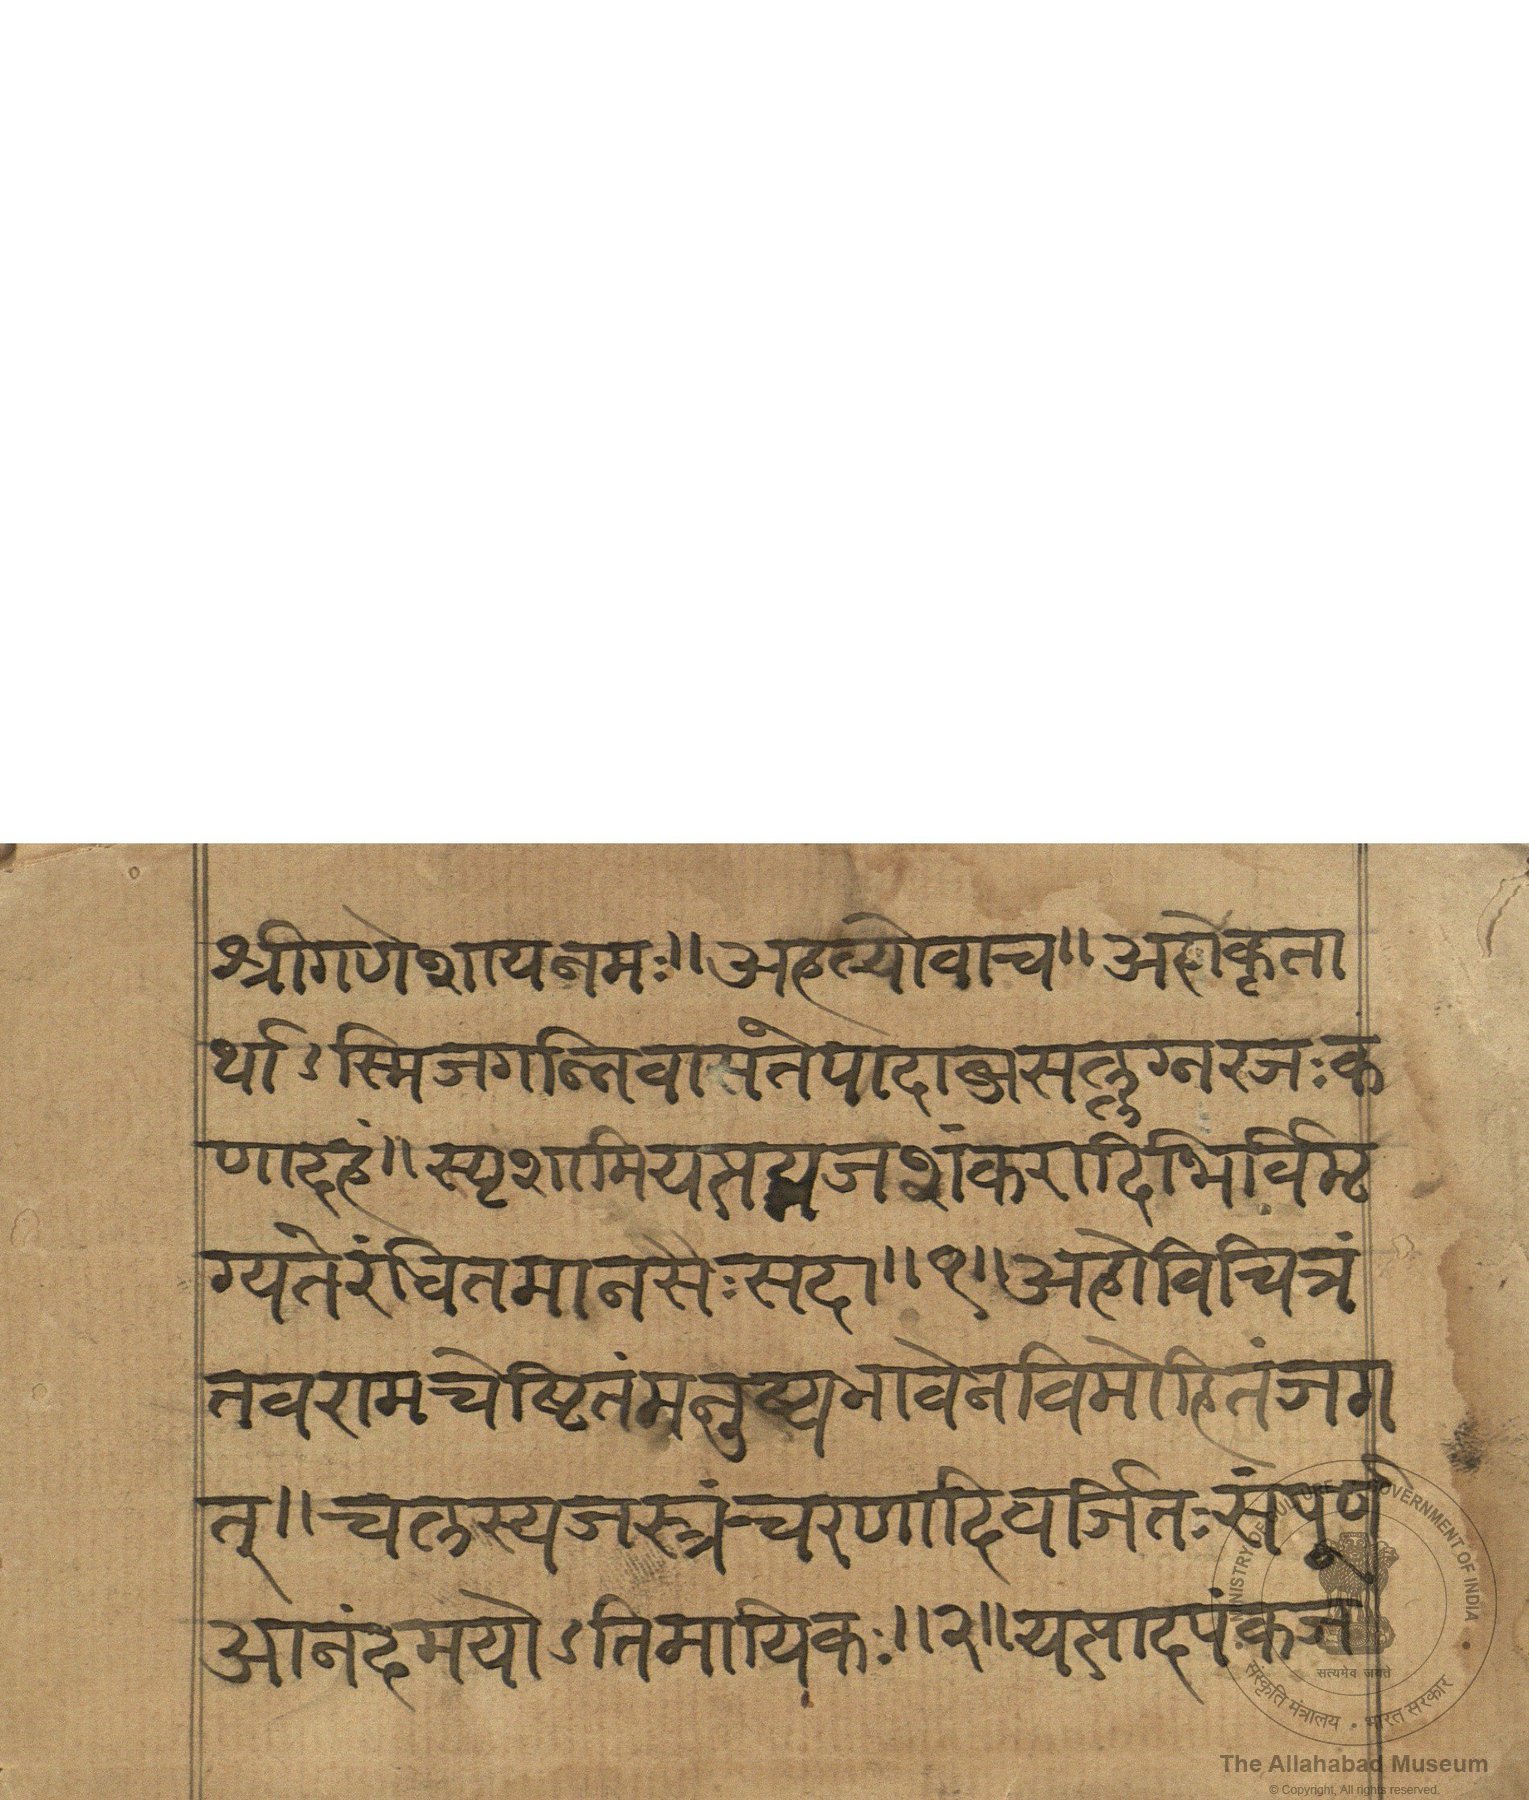 श्रीगणेशायनमः॥अहल्योवाच॥अहोकृता
र्थाऽस्मिजगन्निवासतेपादाब्जसल्लग्नरजःक
णादहं॥स्पृशामियत्पद्मजशंकरादिभिर्विमृ
ग्यतेरंधितमानसैःसदा॥१॥अहोविचित्रं
तवरामचेष्टितंमनुष्यभावेनविमोहितंजग
त्॥चलस्यजस्त्रंचरणादिवर्जितःसंपूर्ण
आनंदमयोऽतिमायिकः॥२॥यत्पादपंकज
MINISTRY OF CULTURE GOVERNMENT OF INDIA
सत्यमेव जयते
संस्कृति मंत्रालय • भारत सरकार
The Allahabad Museum
© Copyright, All rights reserved.